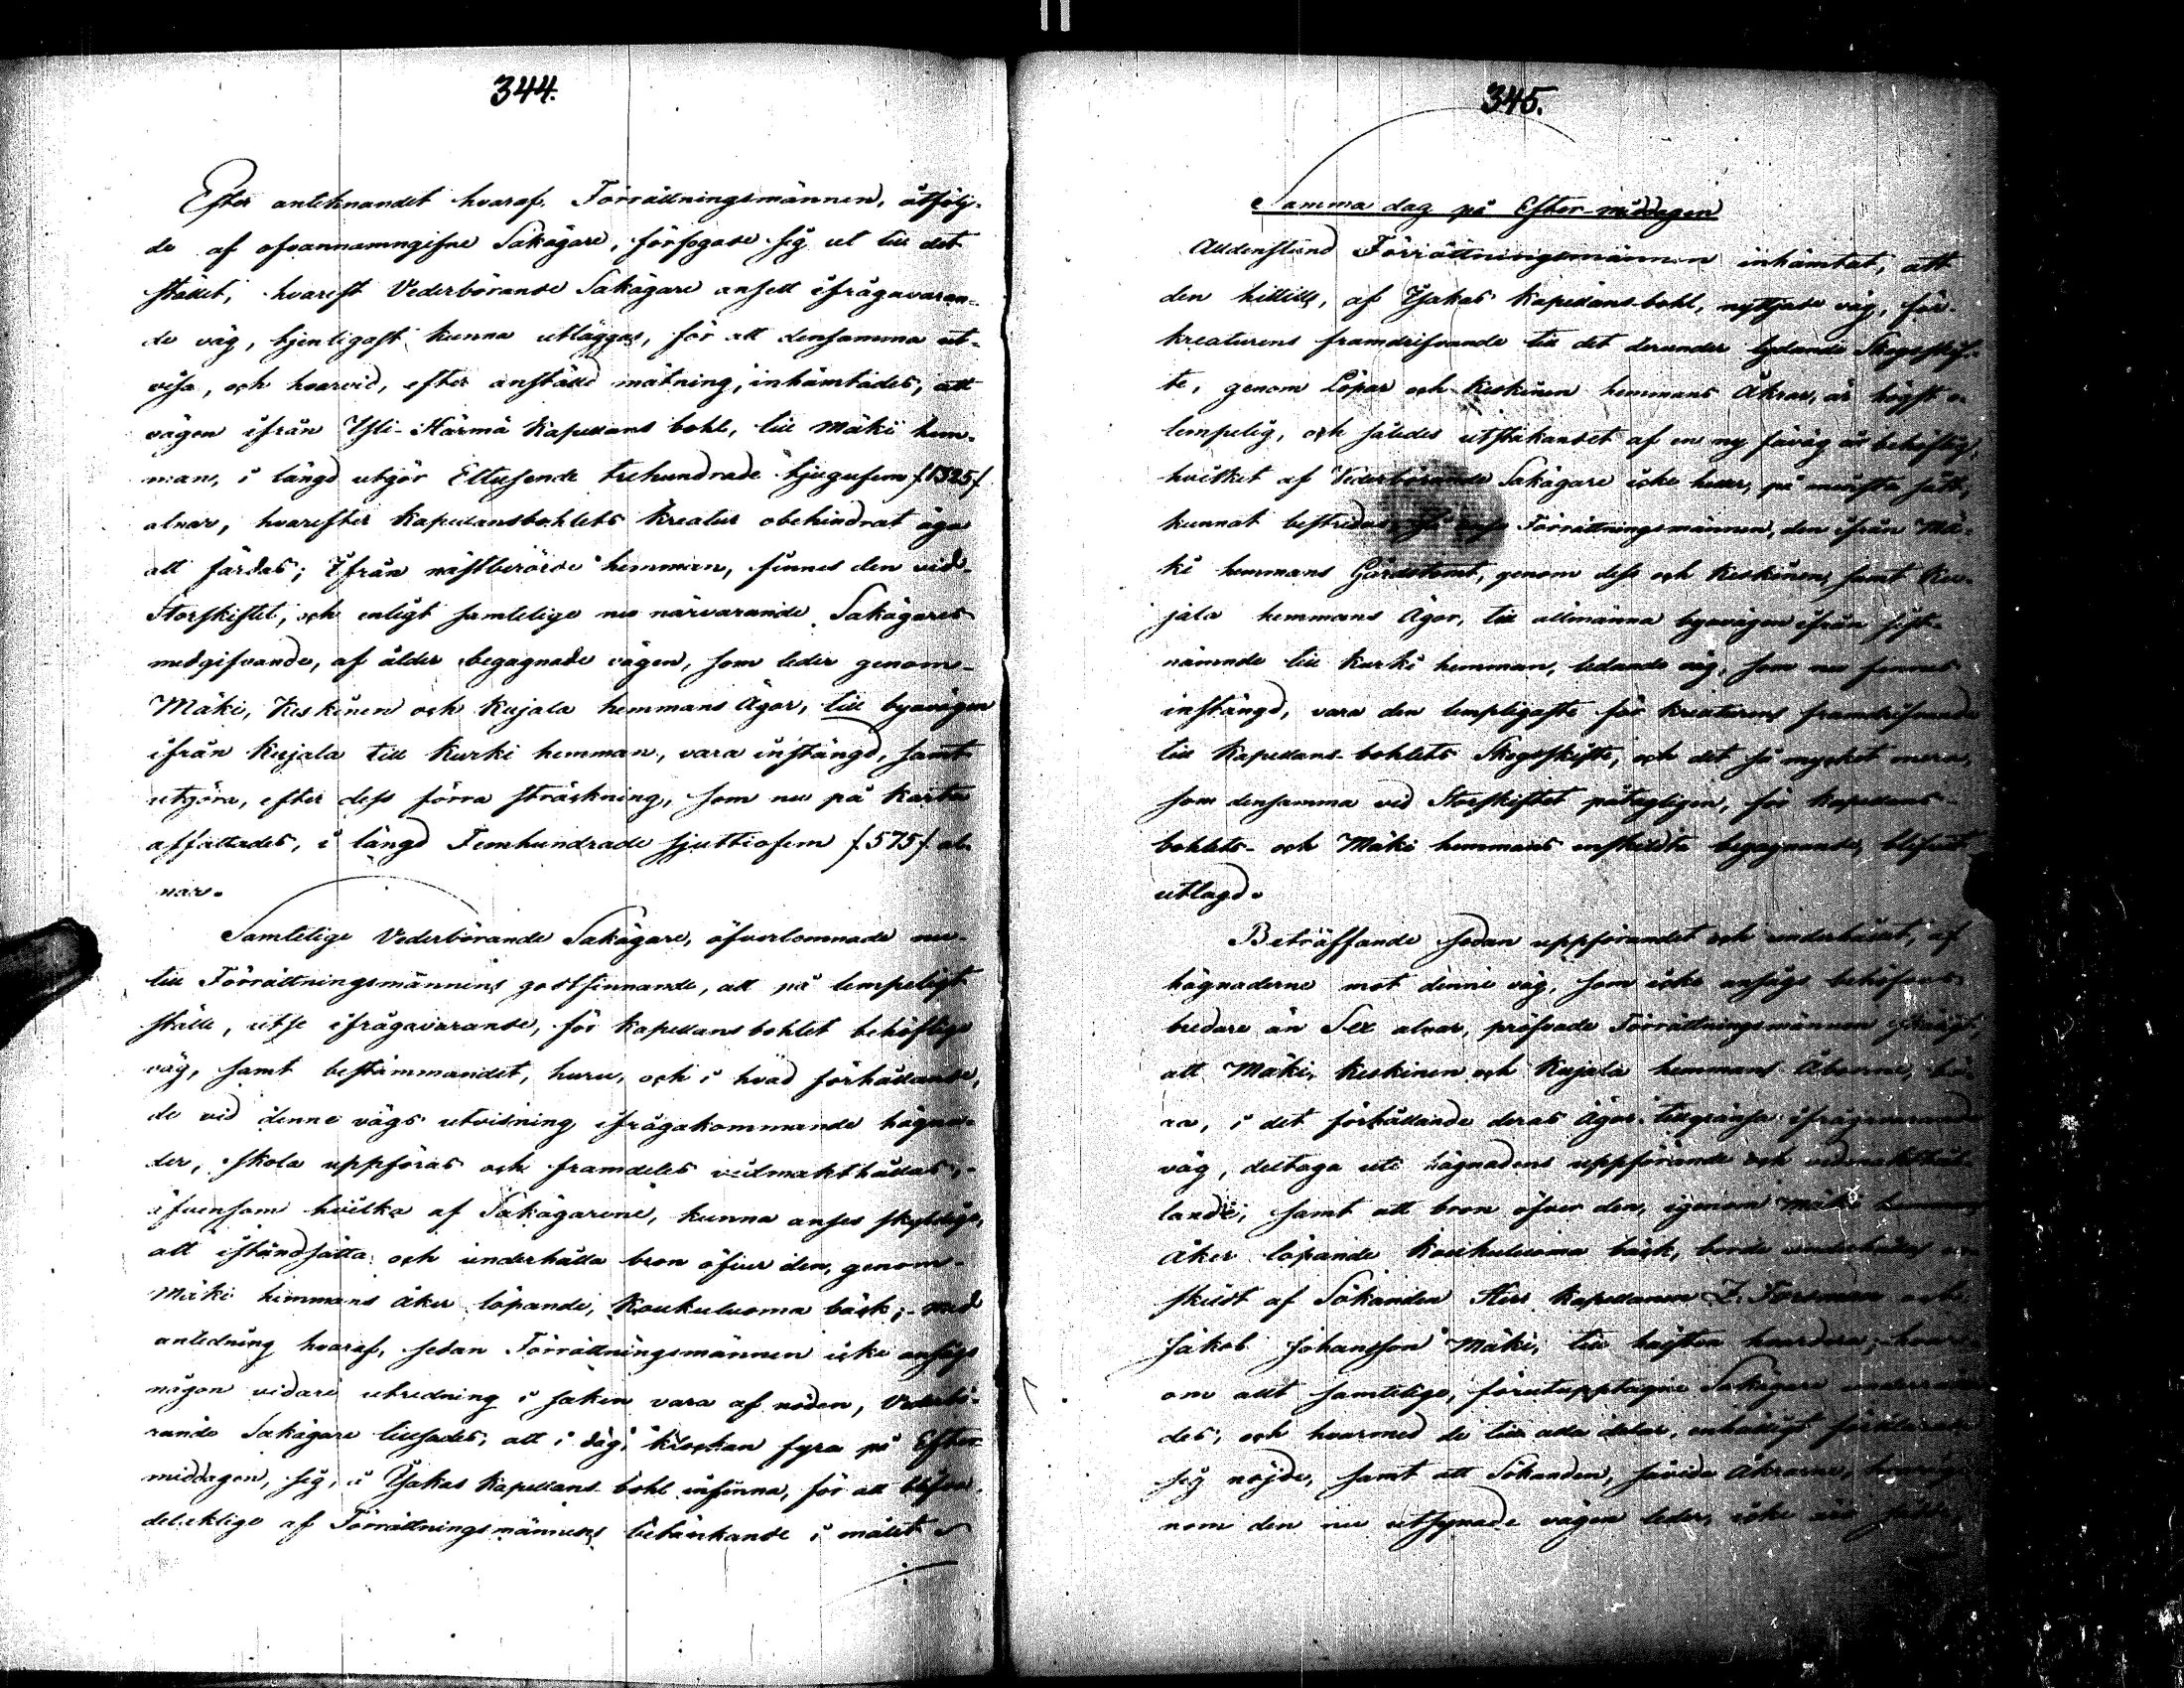 344.
Efter anteknandet hvaraf, Förrättningsmännen, åtfölj-
de af ofvannamngifne Sakägare, förfogade sig ut till det
stället, hvarest Vederbörande Sakägare ansett ifrågavaran-
de väg, tjenligast kunna utläggas, för att densamma ut-
visa, och hvarvid, efter anställd mätning, inhämtades, att
vägen ifrån Ylli-Härmä Kapellans bohl, till Mäki hem-
man, i längd utgör Ettusende trehundrade tjugufem /:1325:/
alnar, hvarefter Kapellansbohlets Kreatur obehindrat äga
att färdas; Ifrån nästberörde hemman, finnes den vid
Storskiftet, och enligt samtelige nu närvarande Sakägares
medgifvande, af ålder begagnade vägen, som leder genom
Mäki, Keskinen och Kujala hemmans Ägor, till byavägen
ifrån Kujala till Kurki hemman, vara instängd, samt
utgöra, efter dess förra sträckning, som nu på Karta
affattades, i längd Femhundrade sjuttiofem /:575:/ al-
nar.
Samtelige Vederbörande Sakägare, öfverlemnade nu
till Förrättningsmännens godtfinnande, att på lempeligt
ställe, utse ifrågavarande, för Kapellans bohlet behöflige
väg, samt bestämmandet, huru, och i hvad förhållande,
de vid denne vägs utvisning ifrågakommande hägna-
der, skola uppföras och framdeles vidmakthållas,
äfvensom hvilka af Sakägarene, kunna anses skyldige,
att iståndsätta och underhålla bron öfver den, genom
Mäki hemmans åker löpande, Koukuluoma bäck; med
anledning hvaraf, sedan Förrättningsmännen icke ansågo
någon vidare utredning i saken vara af nöden, Vederbö-
rande Sakägare tillsades, att i dag, klockan fyra på Efter
middagen, sig, å Ysakas Kapellans bohl infinna, för att blifva
delaktige af Förrättningsmännens betänkande i målet
345.
Samma dag på Efter-middagen
Alldenstund Förrättningsmännen inhämtat, att
den hittills, af Ysakas Kapellans-bohl, nyttjade väg, för
kreaturens framdrifvande till det derunder lydande Skogsskif-
te, genom Löpar och Keskinen hemmans Åkrar, är högst o-
lempelig, och således utstakandet af en ny fäväg är behöflig,
hvilket af Vederbörande Sakägare icke heller, på minsta sätt,
kunnat bestridas, Förrättningsmännen, den ifrån Mä-
ki hemmans Gårdstomt, genom dess och Keskinen, samt Ku-
jala hemmans Ägor, till allmänna byavägen ifrån sist-
nämnde till Kurki hemman, ledande väg, som nu finnes
instängd, vara den lempligaste för kreaturens framdrifvande
till Kapellans-bohlets Skogsskifte, och det så mycket mera,
som densamma vid Storskiftet påtagligen, för Kapellans-
bohlets- och Mäki hemmans enskildta begagnande, blifvit
utlagd.
Beträffande sedan uppförandet och underhållet, af
hägnaderne mot denne väg, som icke ansågs behöfvas
bredare än Sex alnar, pröfvade Förrättningsmännen skäligt,
att Mäki, Keskinen och Kujala hemmans Åboerne, bö-
ra, i det förhållande deras Ägor tillgränsa ifrågavarande
väg, deltaga uti hägnadens uppförande och vidmakthål-
lande, samt att bron öfver den, igenom Mäki hemmans
Åker löpande Koukuluoma bäck, borde underhållas en-
skildt af Sökanden Herr Kapellanen Z. Forsman och
Jakob Johansson Mäki, till hälften hvardera; hvar-
om allt samtelige, förutupptagne Sakägare underrätta-
des, och hvarmed de till alla delar, enhälligt förklarade
sig nöjde, samt att Sökanden, såvida Åkrarne,
nom den nu utsynade vägen leder, icke äro